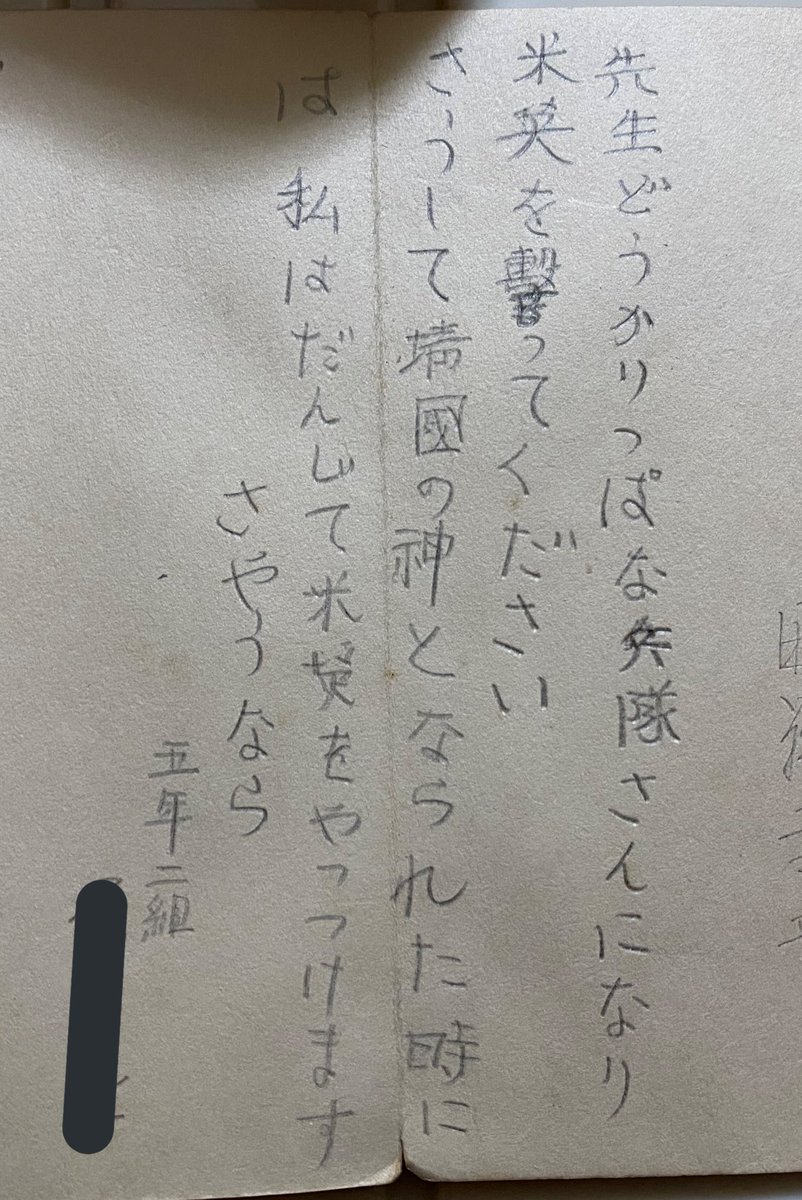 先生どうかりっぱな兵隊さんになり
米英を撃ってください
さうして靖國の神となられた時に
は 私はだんじて米英をやっつけます
さやうなら
五年二組